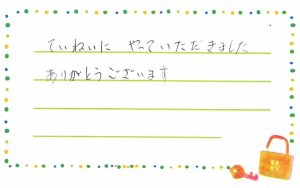 ていねいに やっていただきました
ありがとうございます